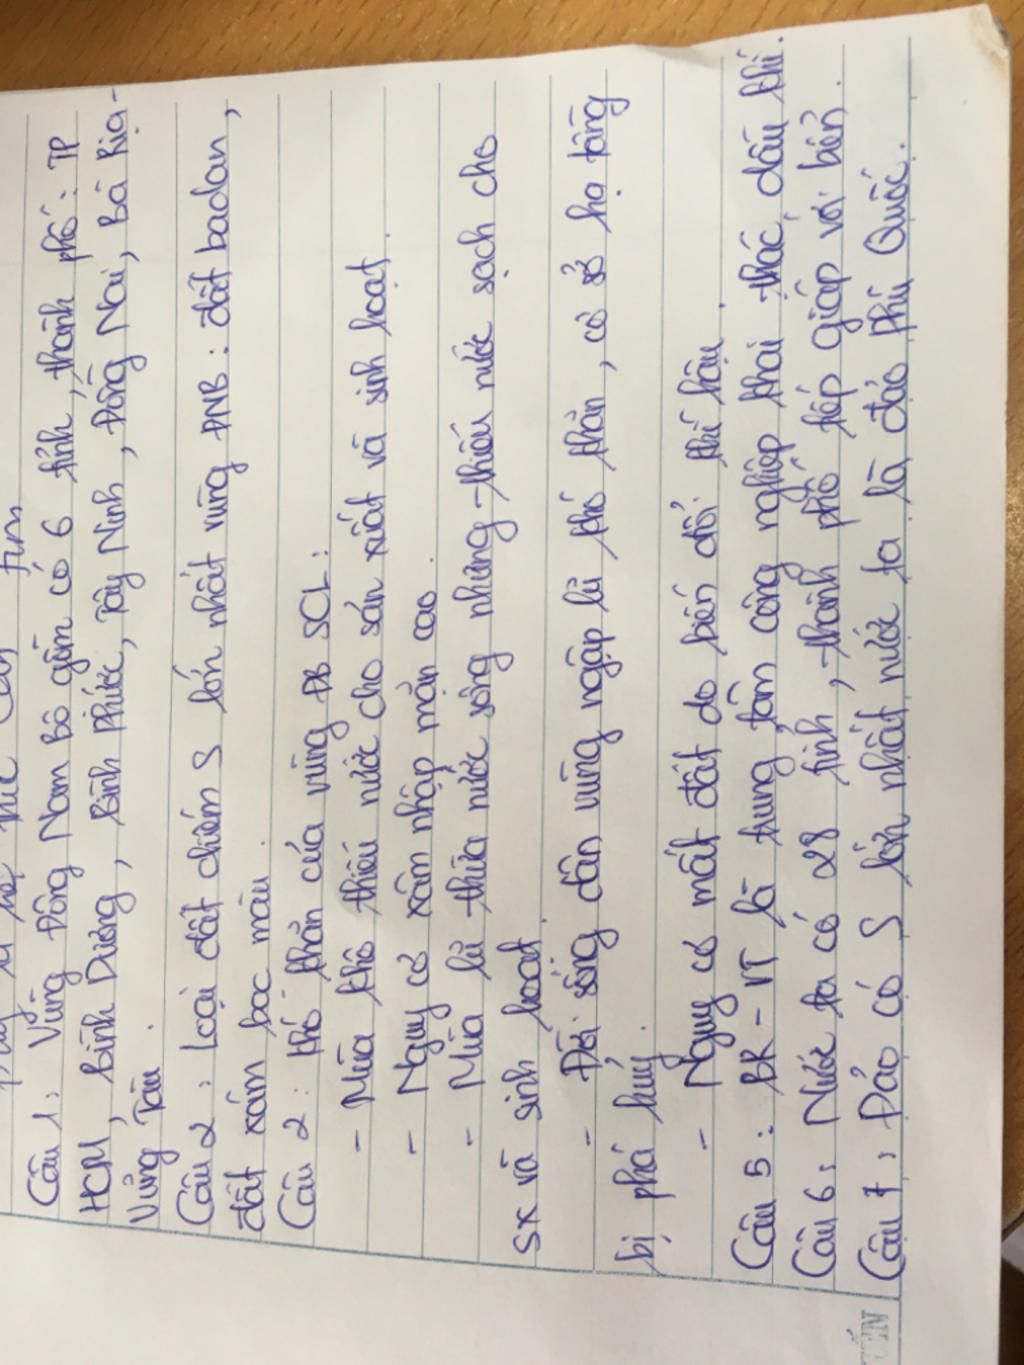 Câu 1: Vùng Đông Nam Bộ gồm có 6 tỉnh, thành phố: TP
HCM, Bình Dương, Bình Phước, Tây Ninh, Đồng Nai, Bà Rịa-
Vũng Tàu.
Câu 2: Loại đất chiếm S lớn nhất vùng ĐNB: đất badan,
đất xám bạc màu.
Câu 2: Khó khăn của vùng ĐB SCL:
- Mùa khô thiếu nước cho sản xuất và sinh hoạt.
- Nguy cơ xâm nhập mặn cao.
- Mùa lũ thừa nước sông nhưng thiếu nước sạch cho
sx và sinh hoạt.
- Đời sống dân vùng ngập lũ khó khăn, cơ sở hạ tầng
bị phá huỷ.
- Nguy cơ mất đất do biến đổi khí hậu.
Câu 5: BR - VT là trung tâm công nghiệp khai thác dầu khí.
Câu 6: Nước ta có 28 tỉnh, thành phố tiếp giáp với biển.
Câu 7: Đảo có S lớn nhất nước ta là đảo Phú Quốc.